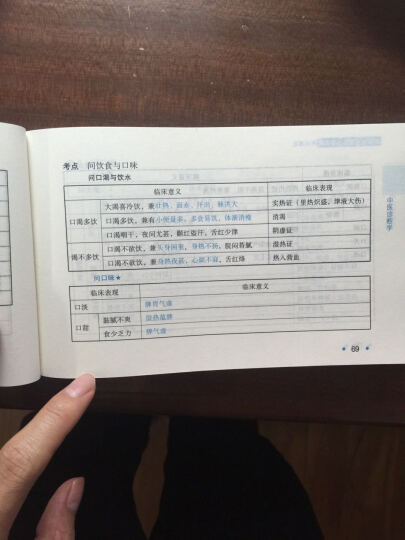 考点 问饮食与口味
问口渴与饮水
临床意义 临床表现
口渴多饮 大渴喜冷饮，兼壮热，面赤，汗出，脉洪大 实热证（里热炽盛，津液大伤）
口渴多饮，兼有小便量多，多食易饥，体渐消瘦 消渴
口渴咽干，夜间尤甚，颧红盗汗，舌红少津 阴虚证
渴不多饮 口渴不欲饮，兼头身困重，身热不扬，脘闷苔腻 湿热证
口渴不欲饮，兼身热夜甚，心烦不寐，舌红绛 热入营血
问口味★
临床表现 临床意义
口淡 脾胃气虚
口甜 黏腻不爽 湿热蕴脾
食少乏力 脾气虚
中医诊断学
• 69 •